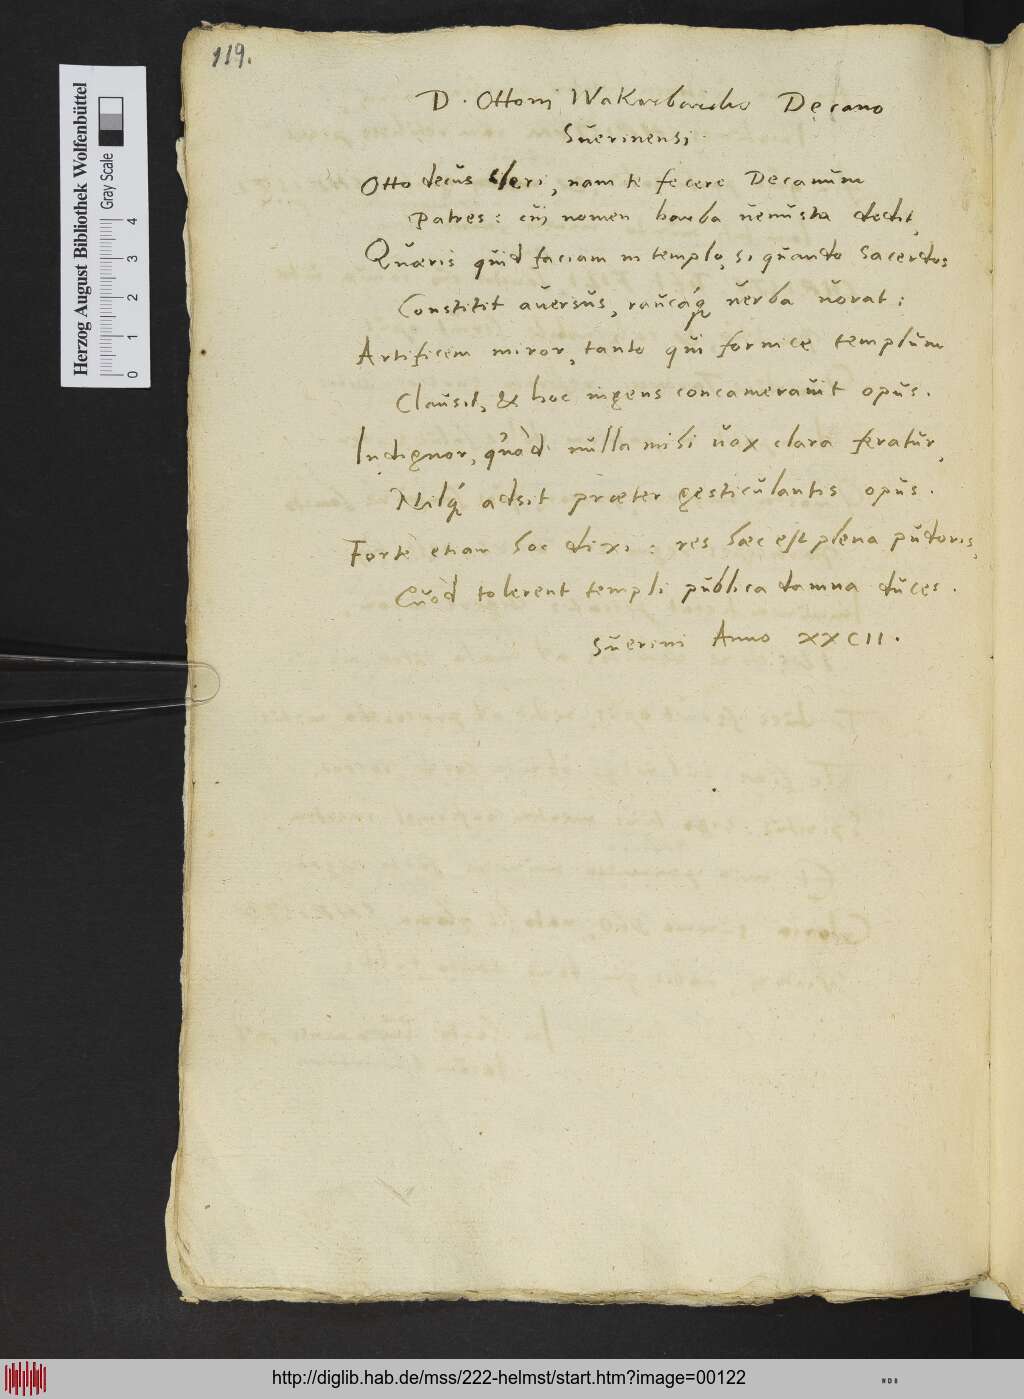 119.
D. Ottoni Wakerbardo Decano
Suerinensi.
Otto decus cleri, nam te fecere Decanum
Patres: cui nomen barba uenusta dedit,
Quæris quid faciam in templo, si quando Sacerdos
Constitit auersus, raucáq; uerba uorat:
Artificem miror, tanto qui fornice templum
Clausit, & hoc ingens concamerauit opus.
Indignor, quòd nulla mihi uox clara feratur,
Nilq́; adsit præter gesticulantis opus.
Fortè etiam hoc dixi: res hæc est plena pudoris,
Quòd tolerent templi publica damna duces.
Suerini Anno XXCII.
Herzog August Bibliothek Wolfenbüttel
Gray Scale
0 1 2 3 4
http://diglib.hab.de/mss/222-helmst/start.htm?image=00122